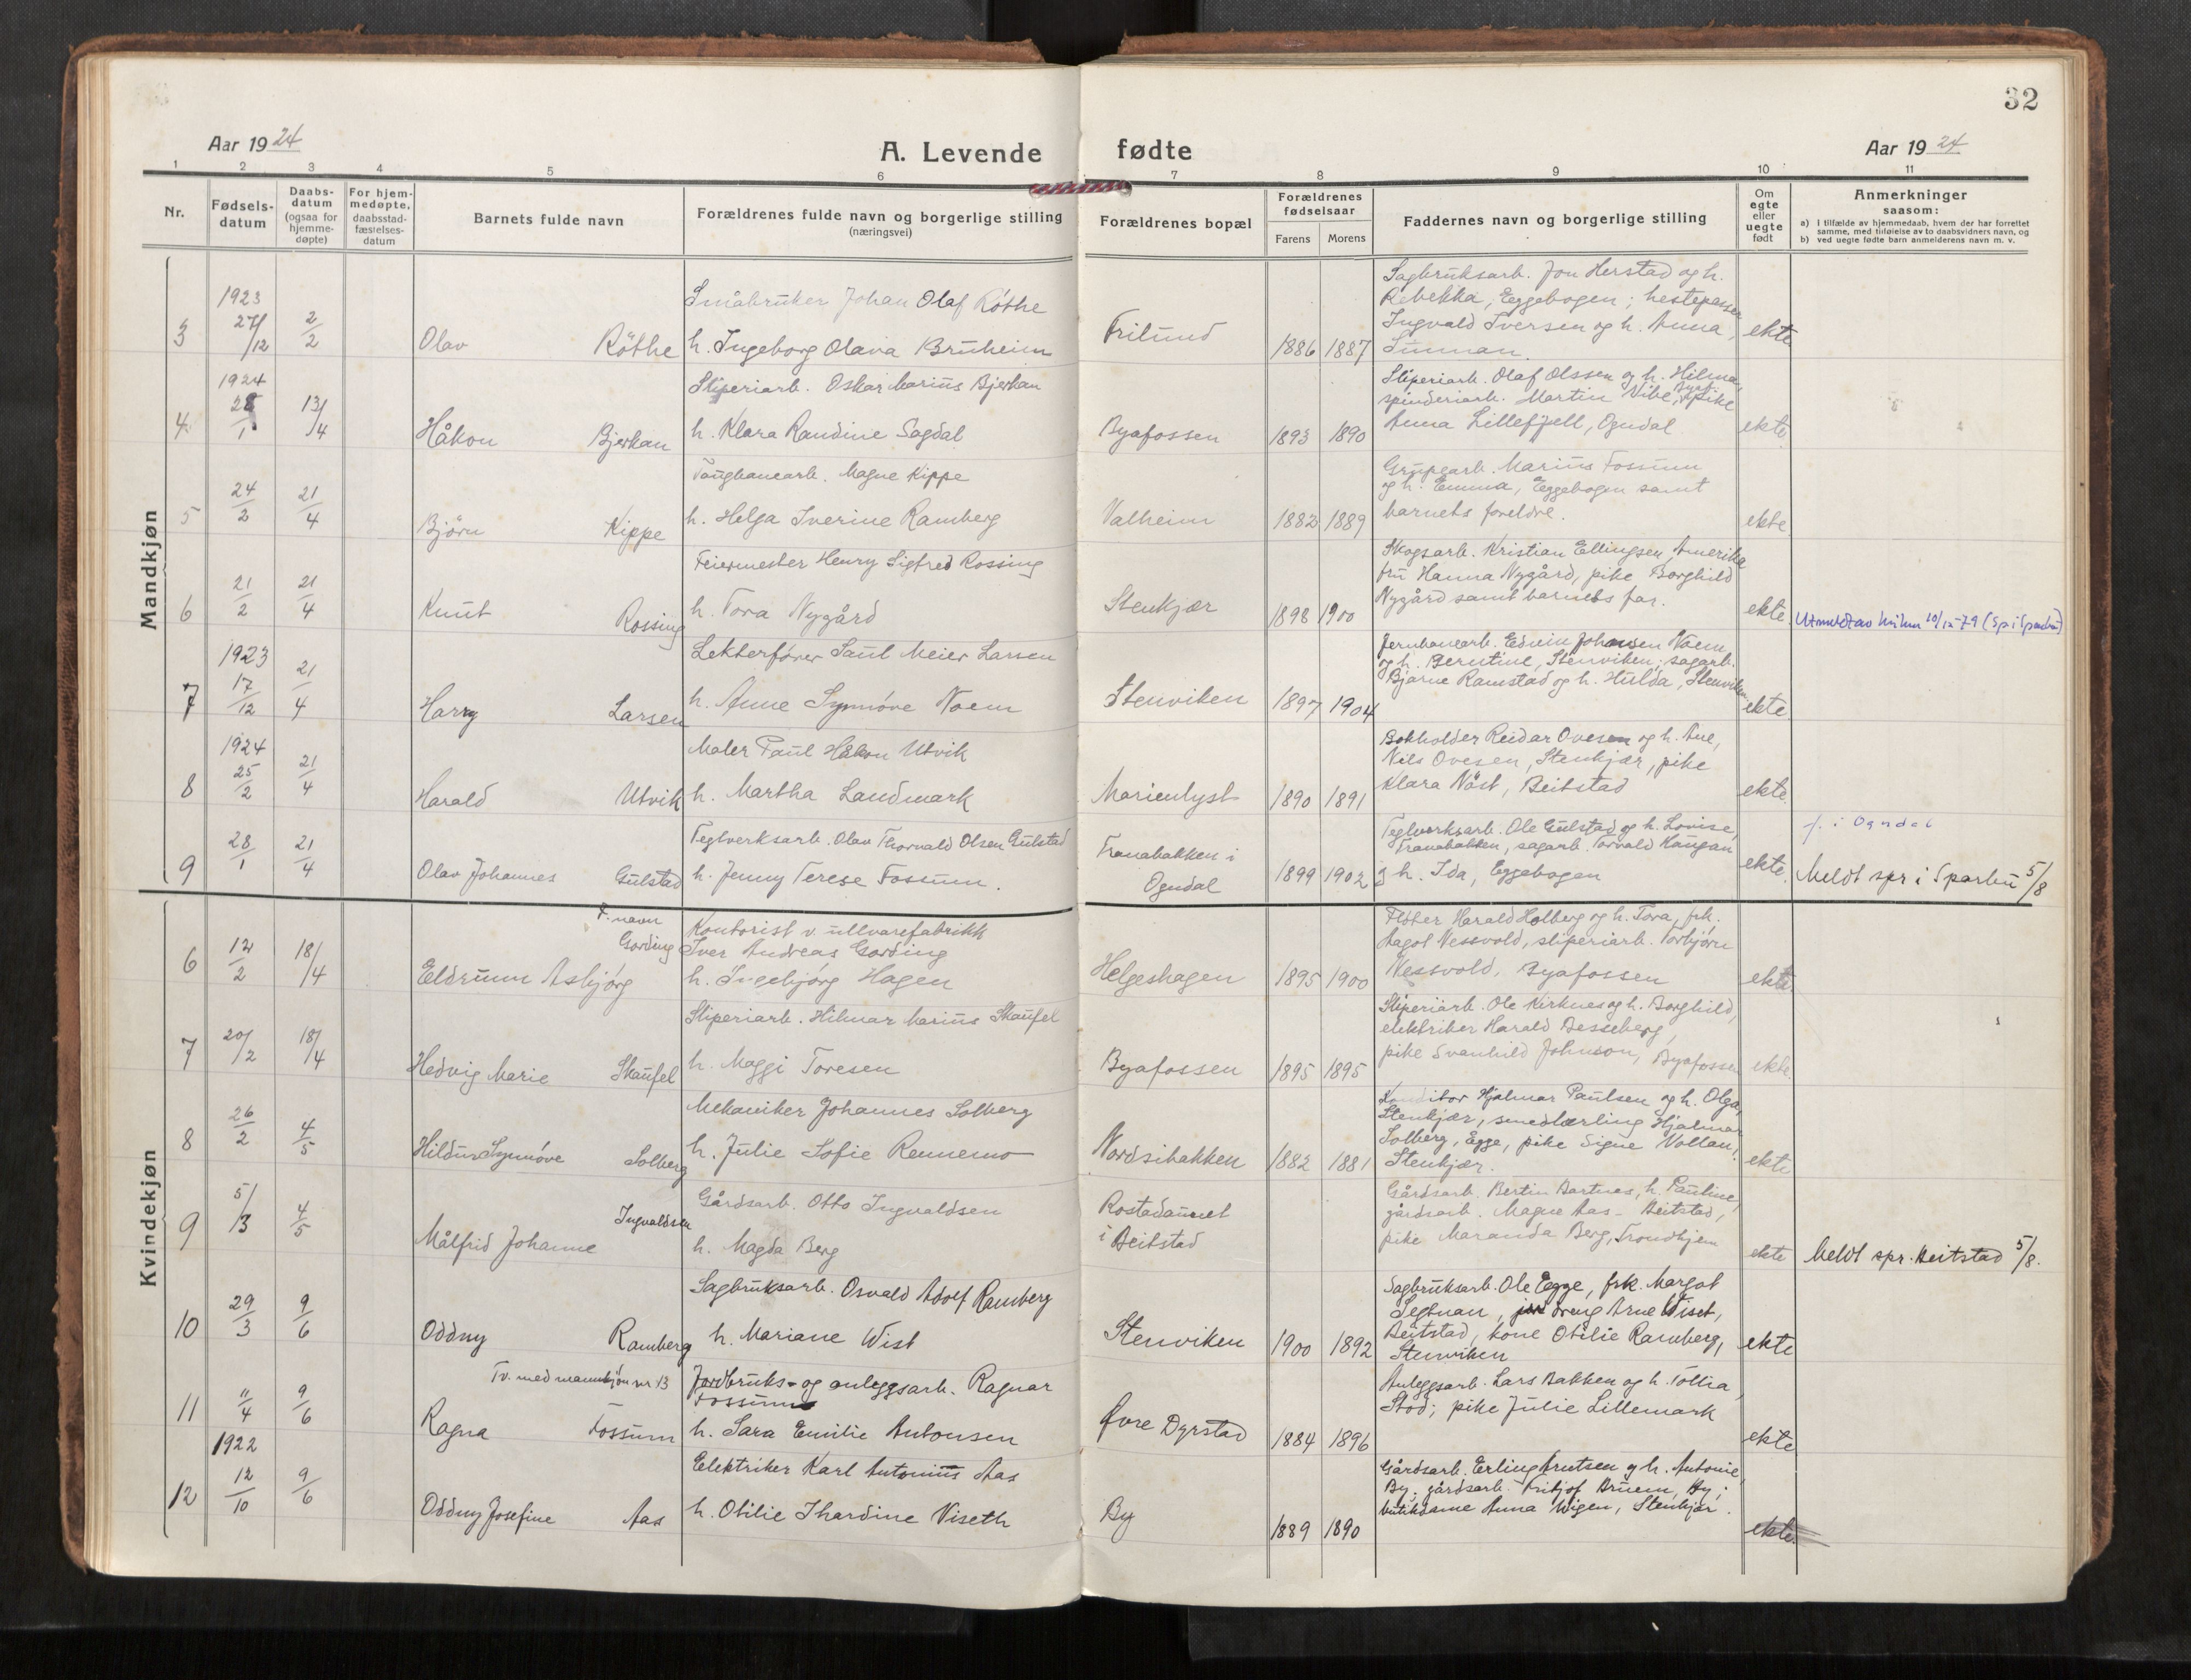 32
Aar 1924
A. Levende fødte
Aar 1924
1 2 3 4 5 6 7 8 9 10 11
Nr.
Fødsels-
datum
Daabs-
datum
(ogsaa for
hjemme-
døpte)
For hjem-
medøpte,
daabsstad-
fæstelses-
datum
Barnets fulde navn
Forældrenes fulde navn og borgerlige stilling
(næringsvei)
Forældrenes bopæl
Forældrenes
fødselsaar
Farens Morens
Faddernes navn og borgerlige stilling
Om
egte
eller
uegte
født
Anmerkninger
saasom:
a) i tilfælde av hjemmedaab, hvem der har forrettet
samme, med tilføielse av to daabsvidners navn, og
b) ved uegte fødte barn anmelderens navn m. v.
Mandkjøn
3
1923
27/12
2/2
Olav Röthe
Småbruker Johan Olaf Röthe
h. Ingeborg Olava Bruheim
Frilund
1886 1887
Sagbruksarb. Jon Herstad og h.
Rebekka, Eggebogen; hestepasser
Ingvald Iversen og h. Anna,
Sunnan.
ekte
4
1924
28/1
13/4
Håkon Bjerkan
Sliperiarb. Oskar Marius Bjerkan
h. Klara Randine Sagdal
Byafossen
1893 1890
Sliperiarb. Olaf Olssen og h. Hilma,
spinderiarb. Martin Vibe, pike
Anna Lillefjell, Ogndal
ekte
5
24/2
21/4
Björn Kippe
Taugbanearb. Magne Kippe
h. Helga Iverine Ramberg
Valheim
1882 1889
Grubearb. Marius Fossum
og h. Emma, Eggebogen samt
barnets foreldre.
ekte
6
21/2
21/4
Knut Rossing
Feiermester Henry Sigfred Rossing
h. Tora Nygård
Stenkjær
1898 1900
Skogsarb. Kristian Ellingsen, Amerika
fru Hanna Nygård, pike Borghild
Nygård samt barnets far.
ekte
Utmeldt av kirken 10/12-79
7
1923
17/12
21/4
Harry Larsen
Lekterfører Saul Meier Larsen
h. Anne Synnöve Noem
Stenviken
1897 1904
Jernbanearb. Edvin Johansen Noem
og h. Berntine, Stenviken; sagarb.
Bjarne Ramstad og h. Hulda, Stenviken
ekte
8
1924
25/2
21/4
Harald Utvik
Maler Paul Håkon Utvik
h. Martha Landmark
Marienlyst
1890 1891
Bokholder Reidar Ovesen og h. Ane,
Nils Ovesen, Stenkjær, pike
Klara Nöst, Beitstad
ekte
9
28/1
21/4
Olav Johannes Gulstad
Teglverksarb. Olav Thorvald Olsen Gulstad
h. Jenny Terese Fossum.
Tranabakken i
Ogndal
1899 1902
Teglverksarb. Ole Gulstad og h. Lovise,
Tranabakken, sagarb. Torvald Haugan
og h. Ida, Eggebogen
ekte
f. i Ogndal
Meldt spr i Sparbu 5/8
Kvindekjøn
6
12/2
18/4
F. navn
Gording
Eldrunn Asbjörg
Kontorist v. ullvarefabrikk
Iver Andreas Gording
h. Ingebjörg Hagen
Helgeshagen
1895 1900
Fløter Harald Holberg og h. Tora, frk.
Aagot Nessvold, sliperiarb. Torbjörn
Nessvold, Byafossen
ekte
7
20/2
18/4
Hedvig Marie Skaufel
Sliperiarb. Hilmar Marius Skaufel
h. Maggi Toresen
Byafossen
1895 1895
Sliperiarb. Ole Kirknes og h. Borghild,
elektriker Harald Besseberg,
pike Svanhild Johnson, Byafossen
ekte
8
26/2
4/5
Hildur Synnöve Solberg
Mekaniker Johannes Solberg
h. Julie Sofie Rennemo
Nordsihakken
1882 1881
Konditor Hjalmar Paulsen og h. Olga,
Stenkjær, smedlærling Hjalmar
Solberg, Egge, pike Signe Vollan,
Stenkjær.
ekte
9
5/3
4/5
Målfrid Johanne Ingvaldsen
Gårdsarb. Otto Ingvaldsen
h. Magda Berg
Rostadaunet
i Beitstad
Gårdsarb. Bertin Bartnes, h. Pauline,
gårdsarb. Magne Aas - Beitstad,
pike Maranda Berg, Trondhjem
ekte
Meldt spr. Beitstad 5/8.
10
29/3
9/6
Oddny Ramberg
Sagbruksarb. Osvald Adolf Ramberg
h. Mariane Wist
Stenviken
1900 1892
Sagbruksarb. Ole Egge, frk. Margot
Segtnan, dreng Arne Wiset,
Beitstad, kone Otilie Ramberg,
Stenviken
ekte
11
11/4
9/6
Tv. med mannkjön nr 13
Ragna Fossum
Jordbruks- og anleggsarb. Ragnar
Fossum
h. Sara Emilie Antonsen
Øvre Dyrstad
1884 1896
Anleggsarb. Lars Bakken og h. Tollia,
Stod; pike Julie Lillemark
ekte
12
1922
12/10
9/6
Oddny Josefine Aas
Elektriker Karl Antonius Aas
h. Otilie Thardine Viseth
By
1889 1890
Gårdsarb. Erling Knutsen og h. Antonie,
By; gårdsarb. Fritjof Bruem, By;
butikdame Anna Wigen, Stenkjær.
ekte